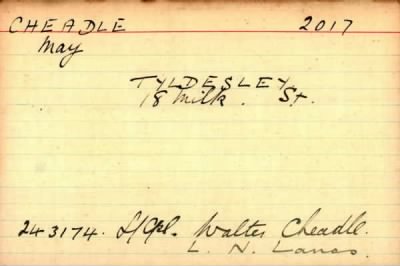 CHEADLE 2017
May
TYLDESLEY
18 Milk St.
243174. L/Cpl. Walter Cheadle.
L. N. Lancs.